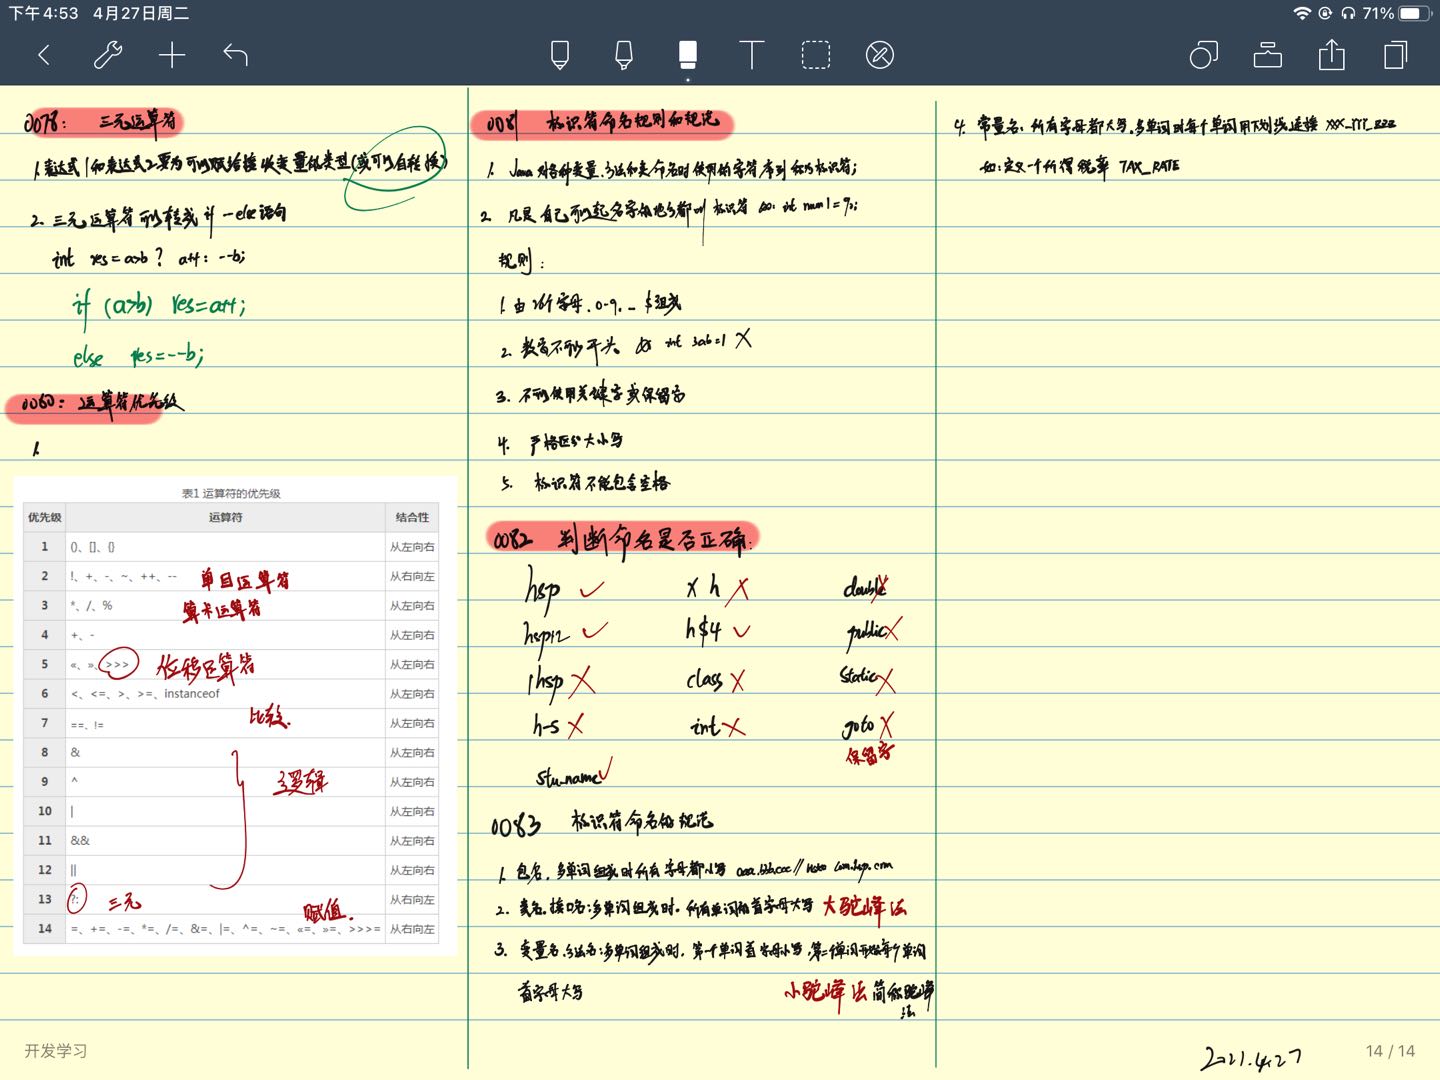 下午4:53 4月27日周二
71%
0078: 三元运算符
1. 表达式1和表达式2要为可以赋给接收变量的类型(或可以自动转换)
2. 三元运算符可以转成 if -else 语句
int res = a>b ? a++ : --b;
if (a>b) res=a++;
else res=--b;
0080: 运算符优先级
1.
表1 运算符的优先级
优先级 运算符 结合性
1 ()、[]、{} 从左向右
2 !、+、-、~、++、-- 单目运算符 从右向左
3 *、/、% 算术运算符 从左向右
4 +、- 从左向右
5 «、»、>>> 位移运算符 从左向右
6 <、<=、>、>=、instanceof 从左向右
比较.
7 ==、!= 从左向右
8 & 从左向右
9 ^ 逻辑 从左向右
10 | 从左向右
11 && 从左向右
12 || 从左向右
13 ?: 三元 从右向左
赋值.
14 =、+=、-=、*=、/=、&=、|=、^=、~=、«=、»=、>>>= 从右向左
开发学习
0081 标识符命名规则和规范
1. Java对各种变量、方法和类命名时使用的字符序列称为标识符;
2. 凡是自己可以起名字的地方都叫标识符 如: int num1=90;
规则:
1. 由26个字母、0-9、_ $组成
2. 数字不可以开头。 如 int 3ab=1 X
3. 不可以使用关键字或保留字
4. 严格区分大小写
5. 标识符不能包含空格
0082 判断命名是否正确:
hsp ✓ x h X double X
hsp12 ✓ h$4 ✓ public X
1hsp X class X static X
h-s X int X goto X
保留字
stu_name ✓
0083 标识符命名的规范
1. 包名: 多单词组成时所有字母都小写 aaa.bbb.ccc // com.hsp.crm
2. 类名、接口名: 多单词组成时, 所有单词的首字母大写 大驼峰法
3. 变量名、方法名: 多单词组成时, 第一个单词首字母小写, 第二个单词开始每个单词
首字母大写 小驼峰法 简称驼峰
法
4. 常量名: 所有字母都大写。多单词时每个单词用下划线连接 XXX_YYY_ZZZ
如: 定义一个所得税率 TAX_RATE
2021.4.27
14 / 14